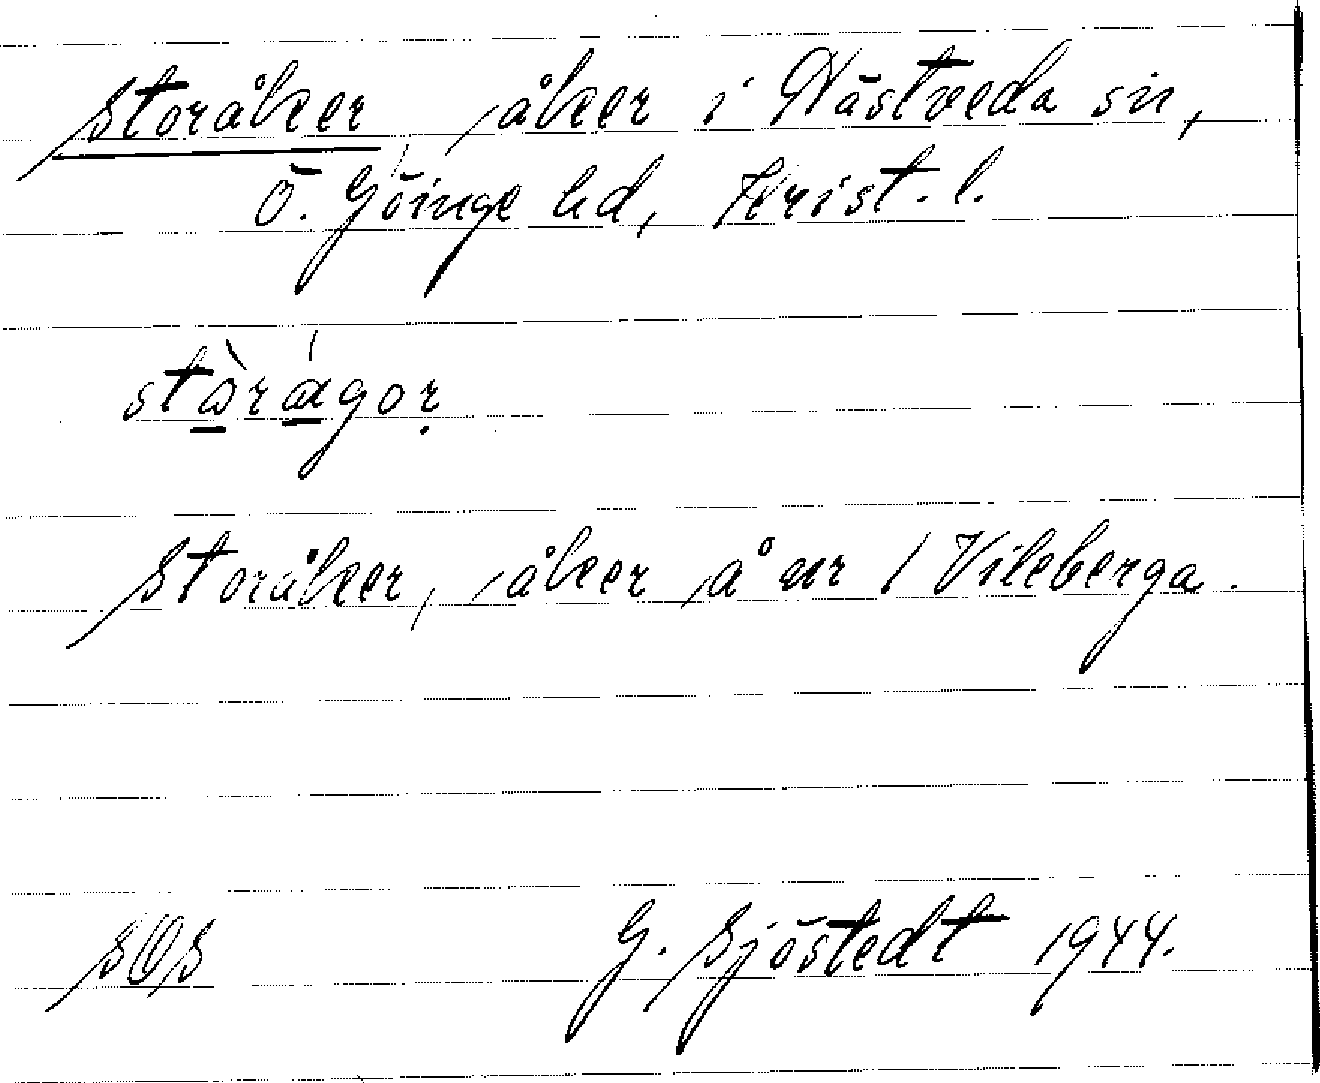 Storåker, åker i Hästveda sn,
Ö. Göinge hd, Krist. l.
stòràgor
Storåker, åker å nr 1 Vileberga.
SOS G. Sjöstedt 1944.